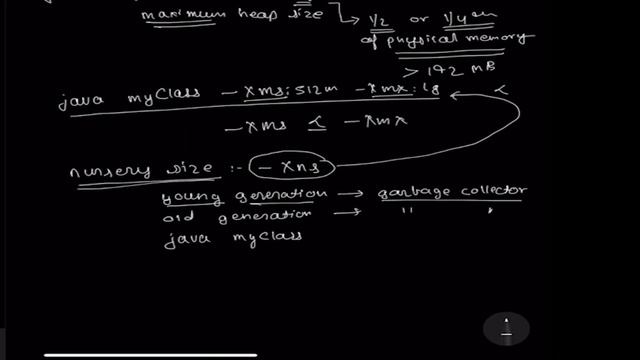 maximum heap size → 1/2 or 1/4th
of physical memory
> 192 MB
java myClass -Xms:512m -Xmx:1g
-Xms ≤ -Xmx
nursery size :- -Xns
young generation → garbage collector
old generation → " "
java myClass